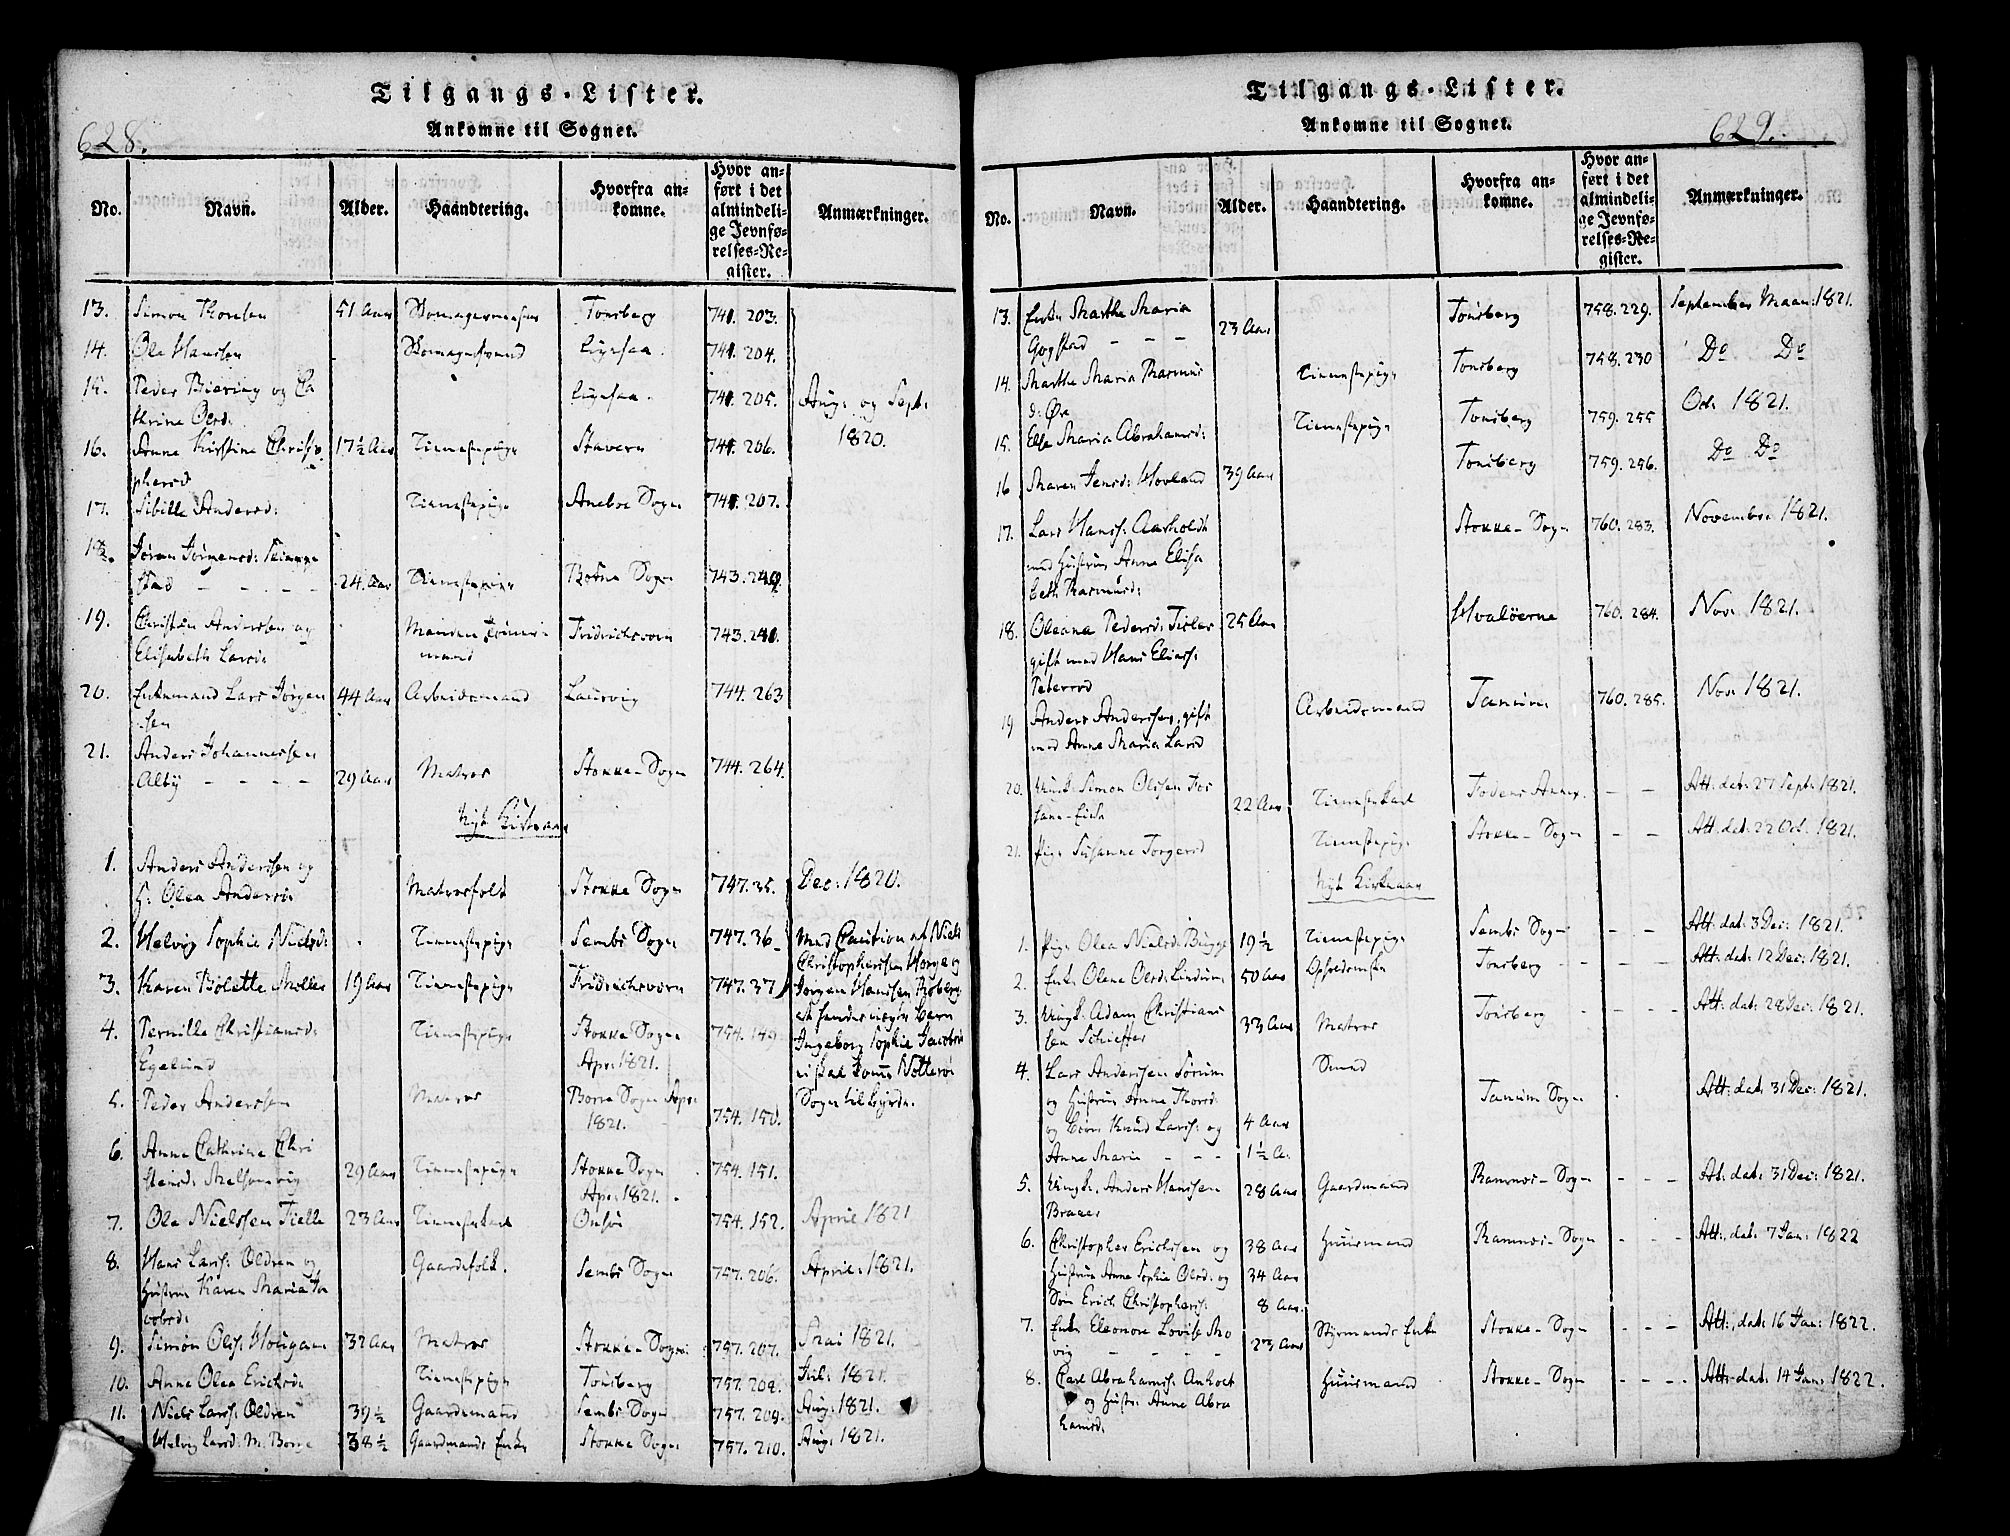 Tilgangs-Lister.
Ankomne til Sognet.
628.
No. Navn. Alder. Haandtering. Hvorfra an-komne. Hvor an-ført i det almindeli-ge Jevnfø-relses-Re-gister. Anmærkninger.
13. Simon Thoresen 51 Aar Tonsberg 741. 203.
14. Ole Hansen Ligesaa. 741. 204.
15. Peder Biering og Ca
thrine Olsd: Ligesaa. 741. 205. Aug: og Sept:
1820.
16. Anne Kirstine Christo
phersd 17½ Aar Tienestepige Stavern 741. 206.
17. Sibille Andersd: Tienestepige Aneboe Sogn 741. 207.
18. Jøran Jørgensd:
stad - - - - 24. Aar Tienestepige Botne Sogn 743. 240.
19. Christen Andersen og
Elisabeth Larsd: Manden Tømmer-
mand Fridrichsvern 743. 241.
20. Enkemand Lars Jørgen
sen 44 Aar Arbeidsmand Laurvig 744. 263
21. Anders Johannessen
Alby - - - - 29 Aar Matros Stokke-Sogn 744. 264.
Nyt Kirkeaar
1. Anders Anderssen og
H: Olea Andersd: Matrosfolk Stokke Sogn 747. 35. Dec: 1820.
2. Helvig Sophie Nielsd: Tienestepige Sembs Sogn 747. 36 Med Caution af Niels
Christophersen Horge og
3. Karen Bolette Møller 19 Aar Tienestepige Fridrichsværn 747. 37 Jørgen Hanssen
Barn
4. Pernille Christiansd:
Egelund Tienestepige Stokke Sogn
Apr: 1821. 754. 149. Ingeborg Sophie Jacobsd:
ei skal komme Nøtterø
5. Peder Anderssen Matros Borre Sogn Apr:
1821. 754. 150. Sogn til Byrde.
6. Anne Cathrine Chri
stensd: Melsomvig 29 Aar Tienestepige Stokke Sogn
Apr: 1821. 754. 151.
7. Ole Nielssen Fielle 23 Aar Tienestekarl Onsø 754. 152. April 1821
8. Hans Larss: Oldren og
Hustrue Karen Maria Ja
cobsd: Gaardefolk. Sembs Sogn 757. 206. April: 1821.
9. Simon Olss: Hougan 32 Aar Matros Stokke-Sogn 757. 207. Mai 1821.
10. Anne Olea Ericksd: Tienestepige Tonsberg 757. 208. Jul: 1821.
11. Niels Larss: Oldren 39½ Gaardemand Sembs Sogn 757. 209. Aug: 1821.
Helvig Larsd: M. Borre 38½ Gaardmands Enke Stokke Sogn 757. 210. Aug: 1821.
Tilgangs-Lister.
Ankomne til Sognet.
629.
No. Navn. Alder. Haandtering. Hvorfra an-komne. Hvor an-ført i det almindeli-ge Jevnfø-relses-Re-gister. Anmærkninger.
13. Enke Marthe Maria
Gogstad - - - 23 Aar Tønsberg 758. 229. September Maan: 1821.
14. Marthe Maria Rasmus
d: Øre Tienestepige Tonsberg 758. 230 Do Do
15. Else Maria Abrahamsd: Tienestepige Tonsberg 759. 255 Oct: 1821.
16 Maren Jensd: Hovland 39 Aar Tonsberg 759. 256. Do Do
17. Lars Hanss: Aarholdt
med Hustrue Anne Elisa
beth Rasmusd: Stokke-Sogn 760. 283. November 1821.
18. Oleana Pedersd: Tieler
gift med Hans Eliass:
Peterrød 25 Aar Hvaløerne 760. 284. Nov: 1821.
19 Anders Anderssen, gift
med Anne Maria Larsd Arbeidsmand Tanum 760. 285. Nov: 1821.
20. Ungk: Simon Olssen
22 Aar Tienestekarl Fodens Annex. - - Att: dat: 27 Sept: 1821.
21. Pige Susanne Torgersd Tienestepige Stokke-Sogn - - Att: dat: 22 Oct: 1821.
Nyt Kirkeaar
1. Pige Olea Nielsd: Bugge 19½ Tienestepige Sembs Sogn - - Att: dat: 3 Dec: 1821.
2. Enke Olene Olsd: Lindum 50 Aar Tønsberg - - - - Att: dat: 12 Dec: 1821.
3. Ungk: Adam Christians
sen Schiefter 33 Aar Matros Tønsberg - - - - Att: dat: 28 Dec: 1821.
4. Lars Anderssen Sørum
og Hustrue Anne Thorsd:
og Børn Knud Larss: og 4 Aar
Anne Marie - - - 1½ A. Smed Tanum Sogn Att: dat: 31 Dec: 1821.
5. Ungk: Anders Hanssen
Brekke 28 Aar Gaardmand Ramnes-Sogn - - - At: dat: 31 Dec: 1821.
6. Christopher Erichsen og 38 Aar Huusmand Ramnes-Sogn - - - Att: dat: 7 Jan: 1822
Hustrue Anne Sophie Olsd: og 34 Aar
Søn Erich Christophers: 8 Aar.
7. Enke Eleonore Lovise Mo
vig - - - - 23 Aar Styrmands Enke Stokke-Sogn - - - Att: dat: 16 Jan: 1822.
8. Carl Abrahamss: Anholt
og Hustr: Anne Abra
hamsd: Huusmand Stokke-Sogn - - - Att: dat: 14 Jan: 1822.